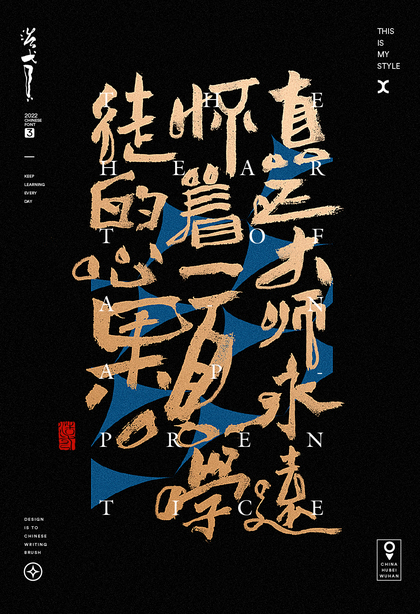 真正大师永遠
怀着一顆學
徒的心
THE
HEAR
T OF
A N
A P -
PREN
TICE
2022
CHINESE
FONT
3
KEEP
LEARNING
EVERY
DAY
THIS
IS
MY
STYLE
DESIGN
IS TO
CHINESE
WRITING
BRUSH
CHINA
HUBEI
WUHAN